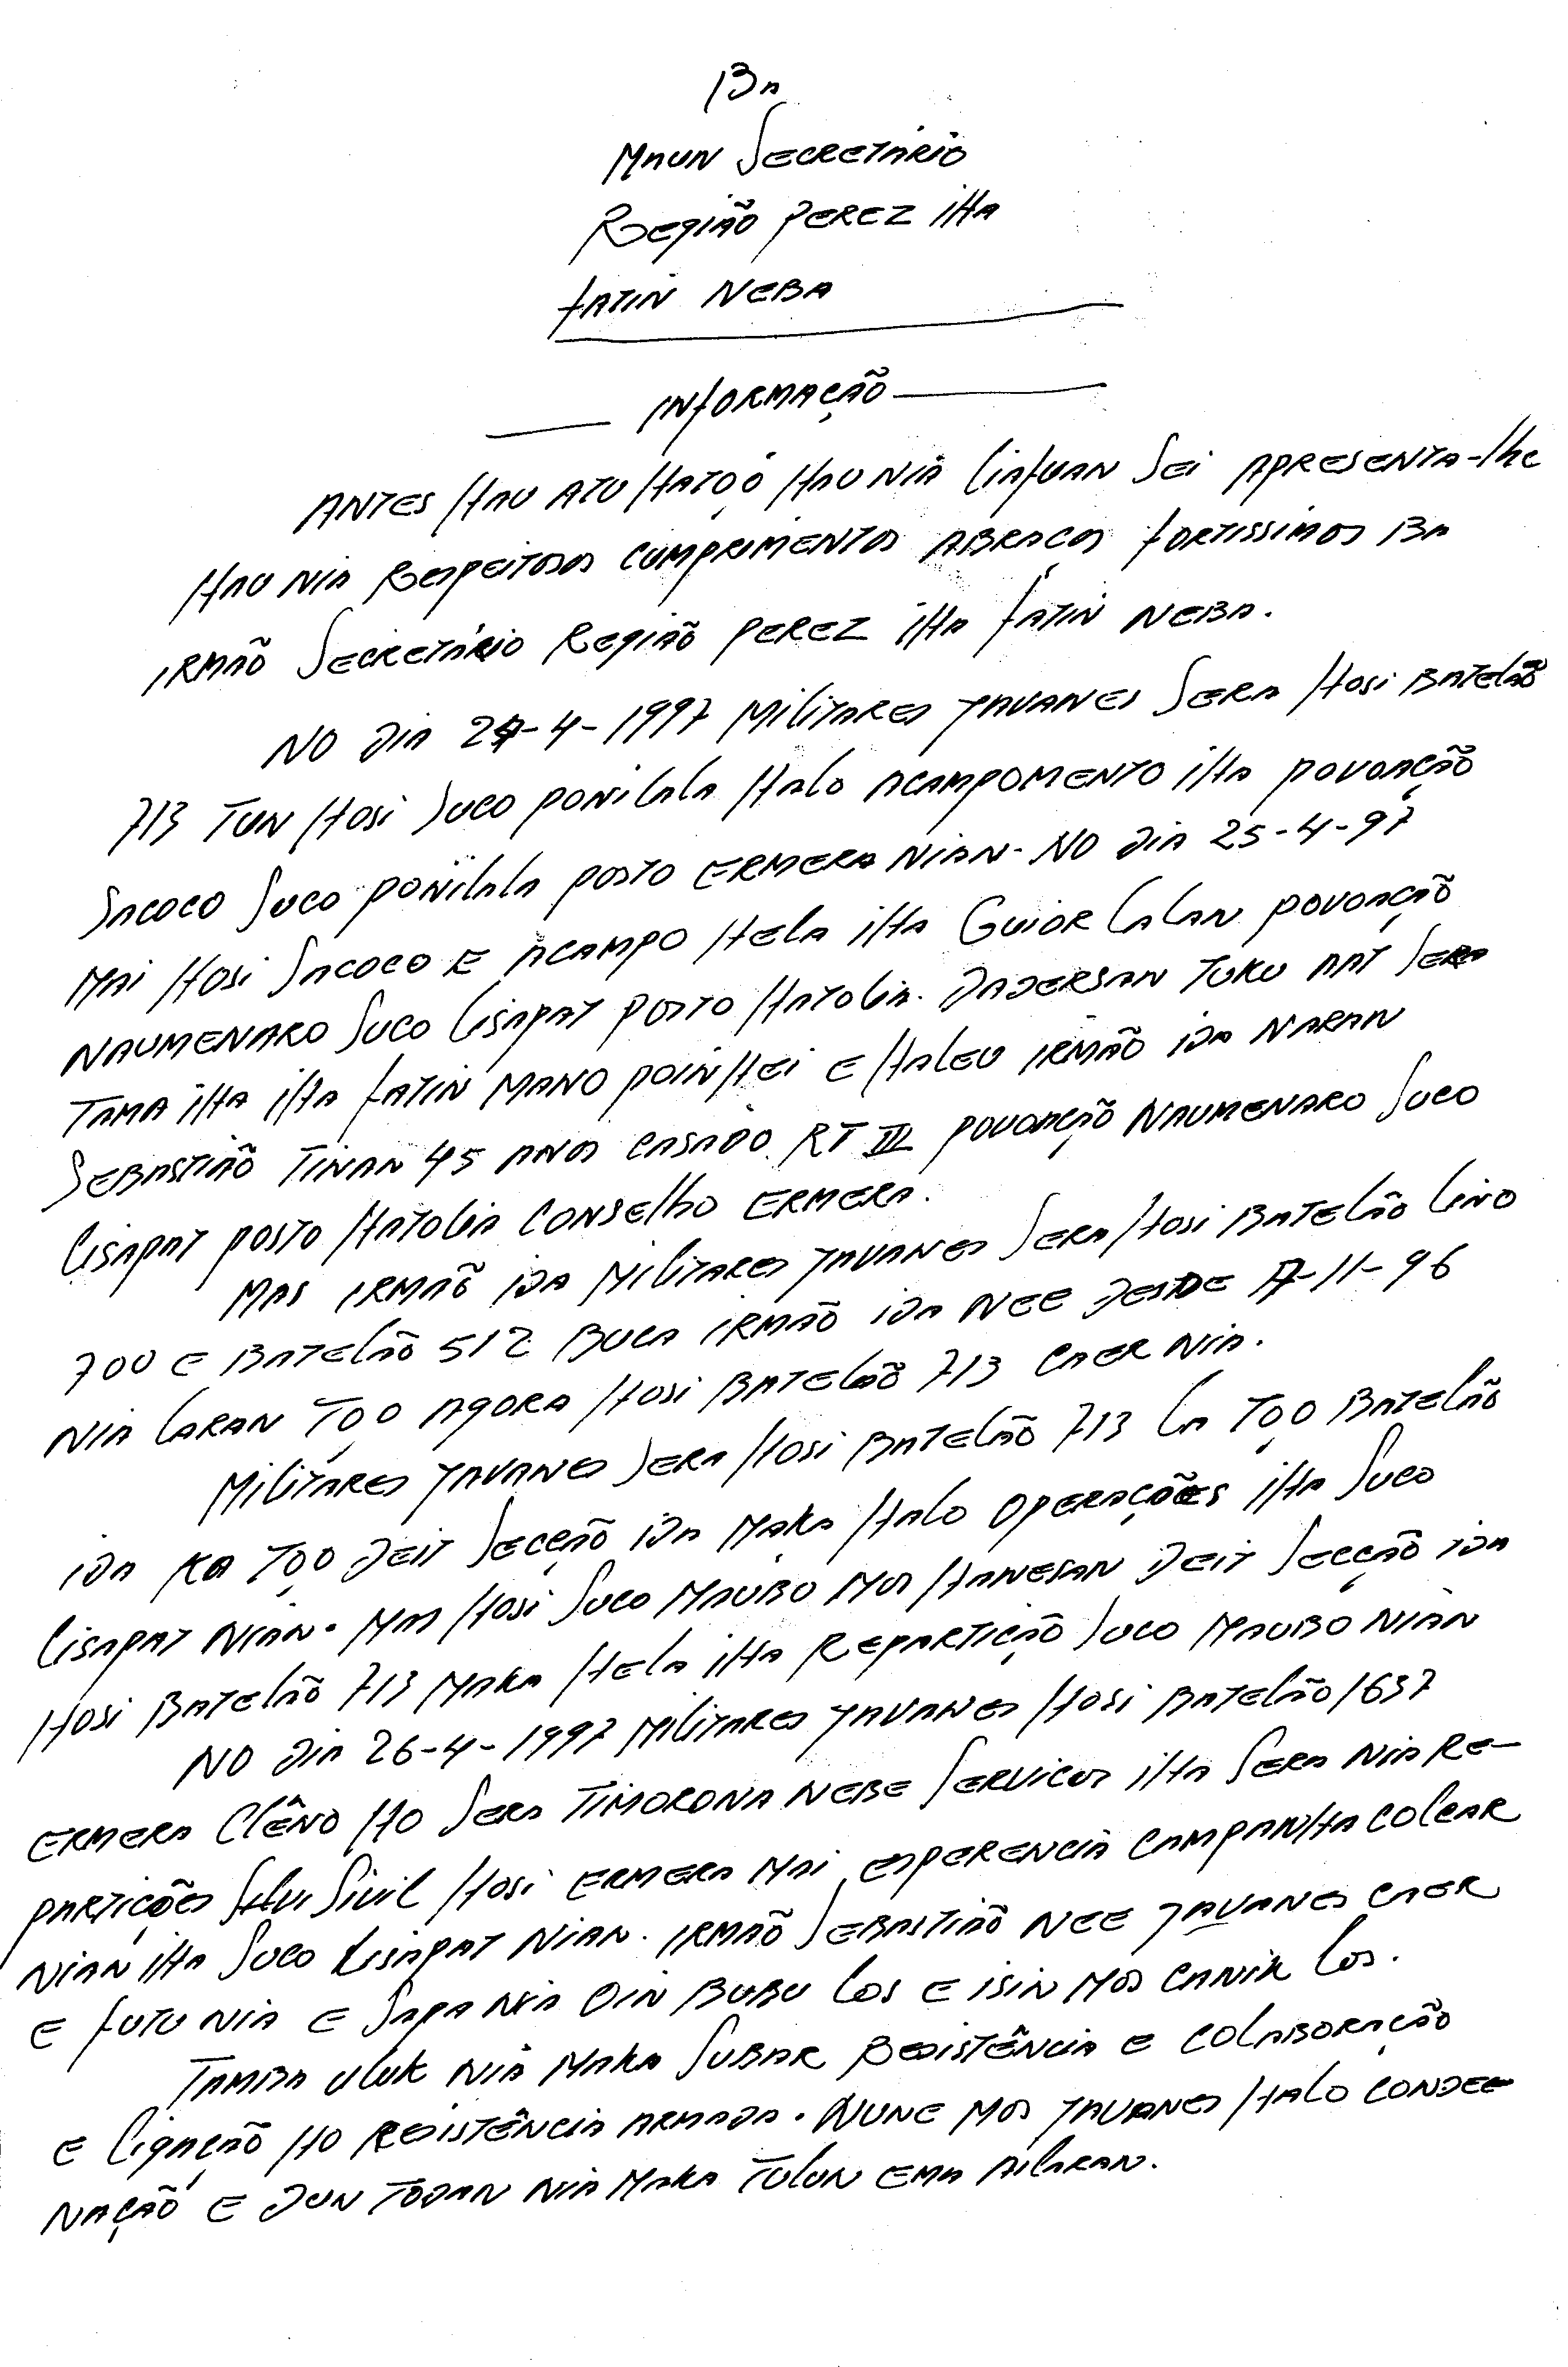 Ba
Maun Secretário
Região Perez iha
fatin neba
Informação
Antes hau atu hatoo hau nia liafuan sei apresenta-lhe
hau nia Respeitosos cumprimentos abraços fortissimos ba
irmão Secretário Região Perez iha fatin neba.
No dia 24-4-1997 Militares Javanes Sera hosi Batelão
713 tun hosi Suco ponilala halo acampomento iha povoação
Sacoco Suco ponilala posto Ermera nian. No dia 25-4-97
mai hosi Sacoco e acampo hela iha Guior lalan povoação
Naumenaro Suco lisapat posto hatolia. Dadersan tuku aat Sera
tama iha iha fatin mano poinhei e haleu irmão ida naran
Sebastião tinan 45 anos casado RT III povoação Naumenaro Suco
lisapat posto hatolia Conselho Ermera.
Mas irmão ida Militares Javanes Sera hosi Batelão lino
700 e Batelão 512 buca irmão ida nee desde 17-11-96
nia laran too agora hosi Batelão 713 caer nia.
Militares Javanes Sera hosi Batelão 713 la too Batelão
ida ka too deit Secção ida maka halo operações iha Suco
lisapat nian. Mas hosi Suco Maubo mos hanesan deit Secção ida
hosi Batelão 713 maka hela iha Repartição Suco Maubo nian
No dia 26-4-1997 Militares Javanes hosi Batelão 1637
Ermera Clêno ho Sera timorona nebe Servicos iha Sera nia Re-
partições Sivil hosi Ermera mai esperencia campanha colcar
nian iha Suco lisapat nian. irmão Sebastião nee Javanes caer
e futu nia e Sapa nia oin bubu los e isin mos canik los.
Tamba uluk nia maka Subar Resistência e colaboração
e ligação ho Resistência armada. Nune mos Javanes halo conde
nação e dun todan nia maka tulun ema ailaran.